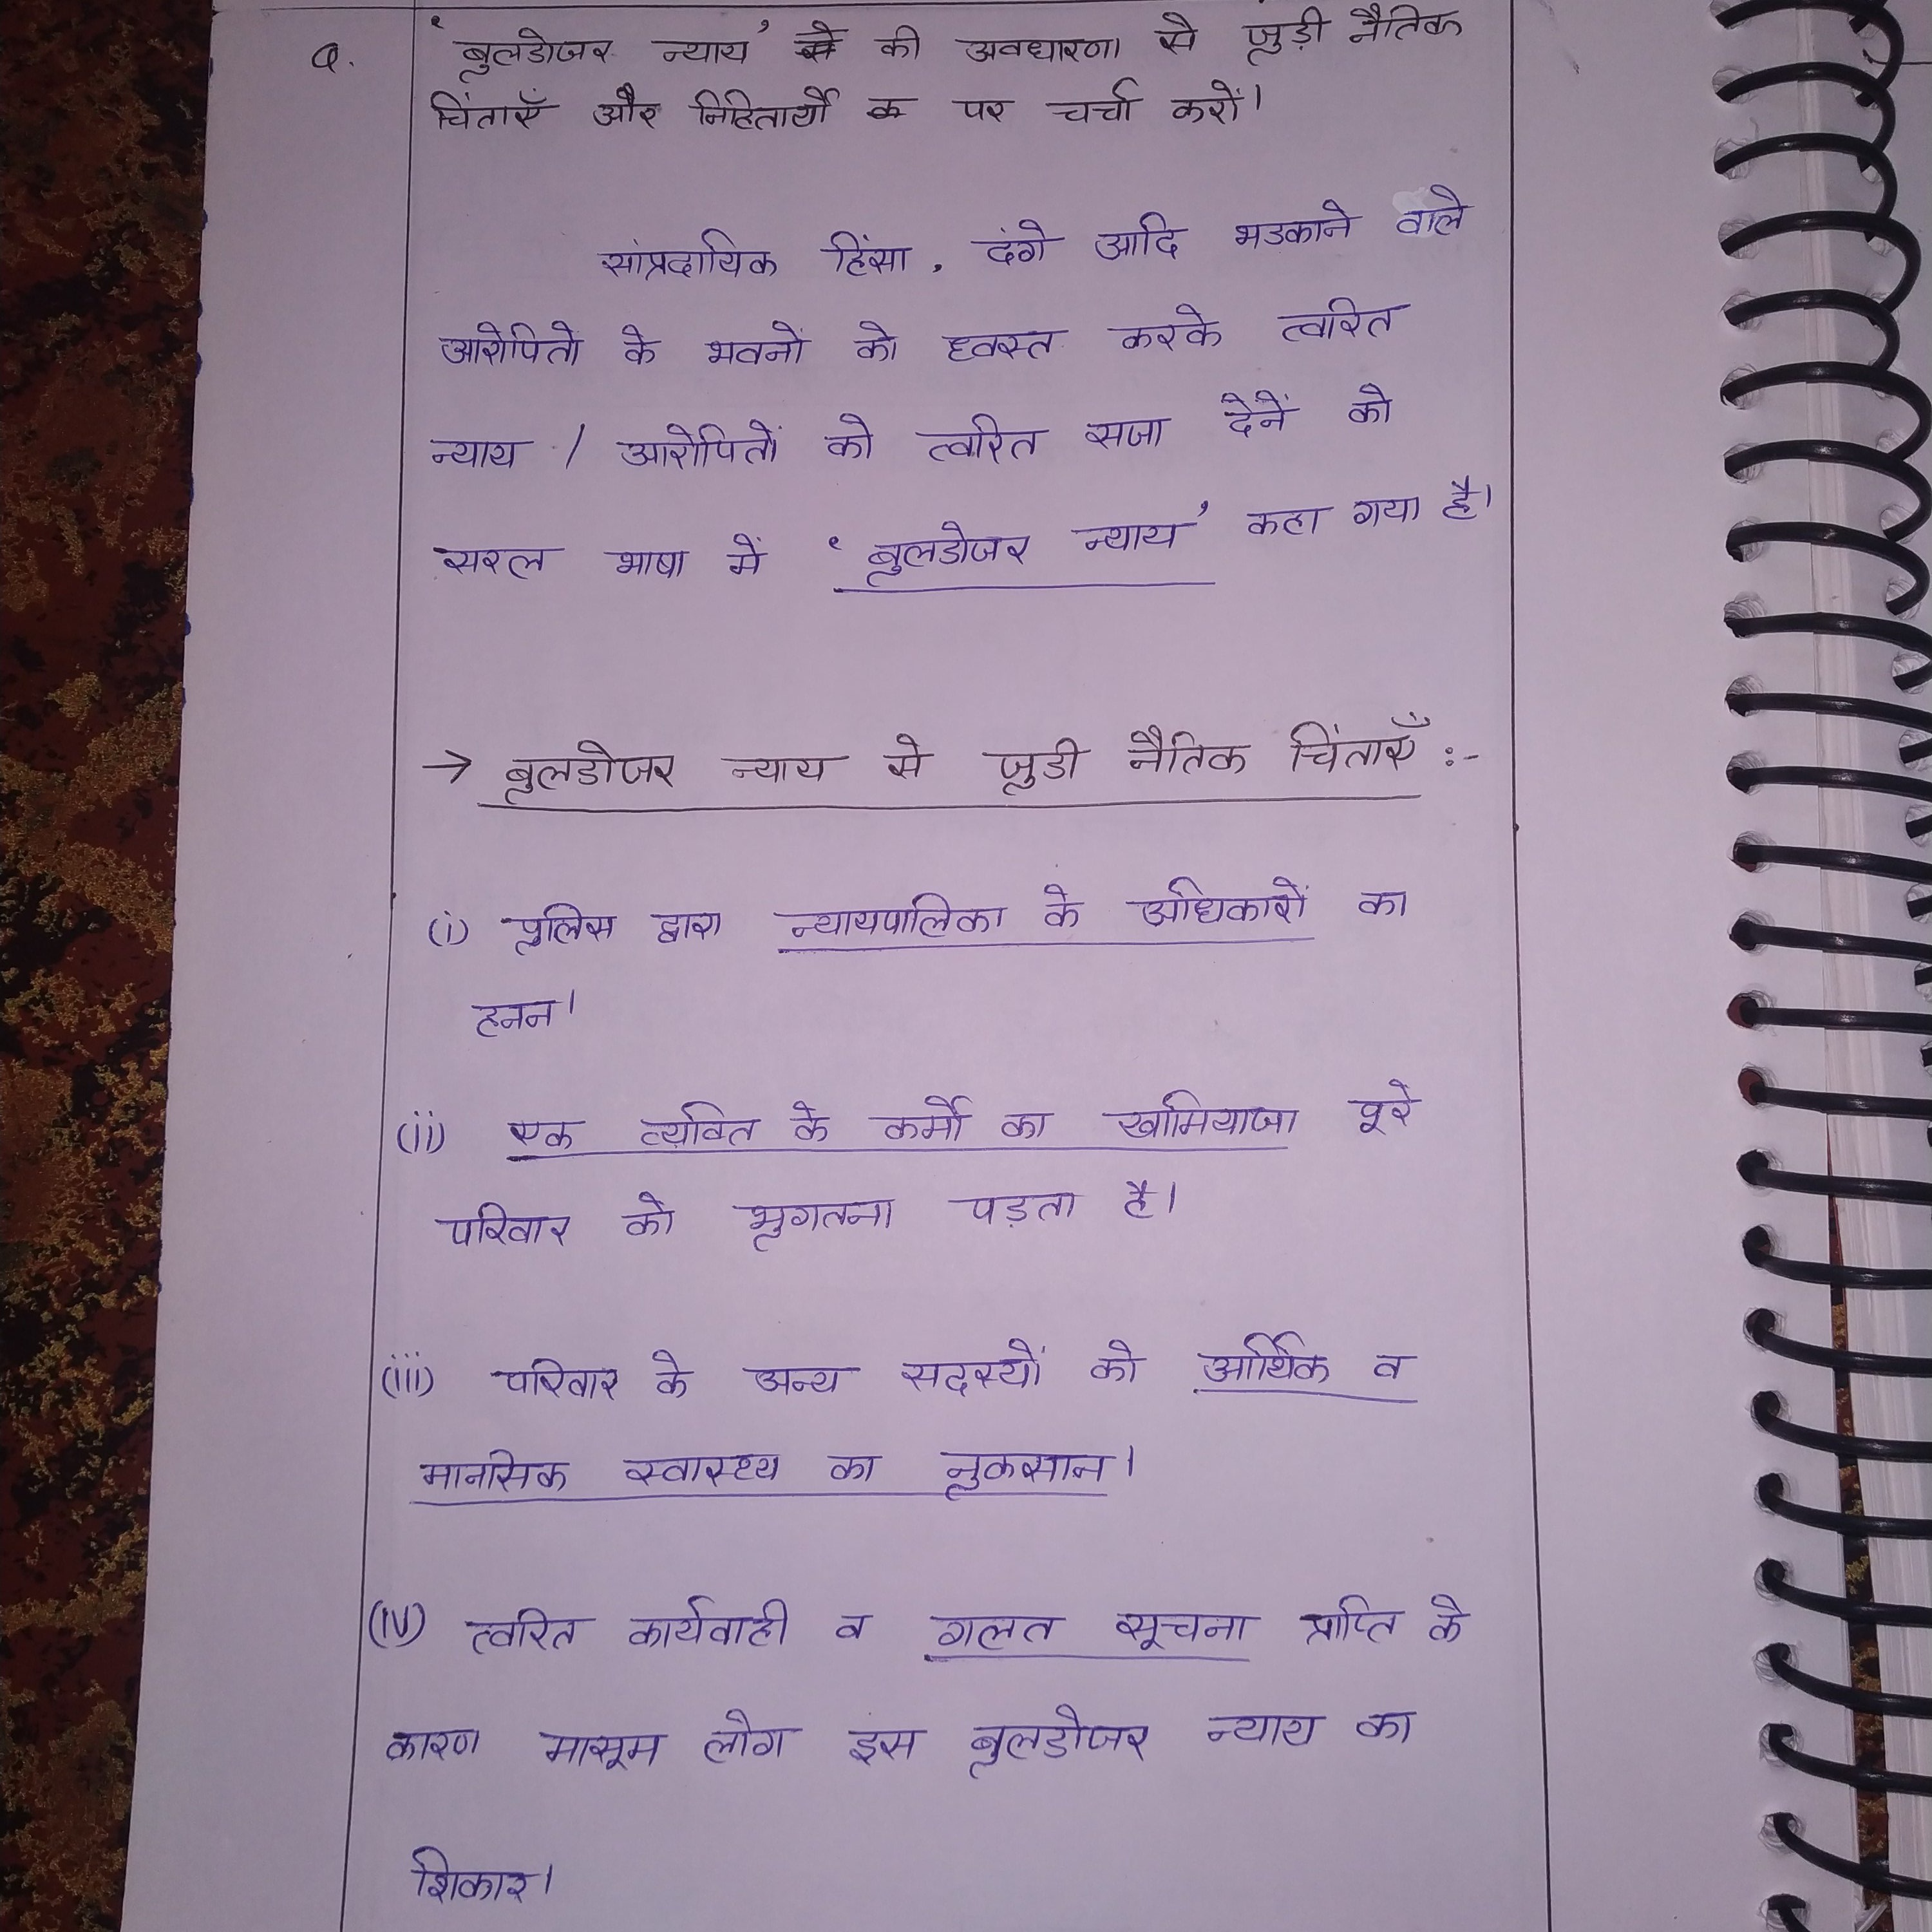 Q. 'बुलडोजर न्याय' की अवधारणा से जुड़ी नैतिक
चिंताएँ और निहितार्थों पर चर्चा करों।
सांप्रदायिक हिंसा, दंगे आदि भडकाने वाले
आरोपितो के भवनों को ध्वस्त करके त्वरित
न्याय / आरोपितों को त्वरित सजा देनें को
सरल भाषा में 'बुलडोजर न्याय' कहा गया है।
→ बुलडोजर न्याय से जुडी नैतिक चिंताएँ :-
(i) पुलिस द्वारा न्यायपालिका के अधिकारों का
हनन।
(ii) एक व्यक्ति के कर्मो का खामियाजा पूरे
परिवार को भुगतना पड़ता है।
(iii) परिवार के अन्य सदस्यों को आर्थिक व
मानसिक स्वास्थ्य का नुकसान।
(iv) त्वरित कार्यवाही व गलत सूचना प्राप्ति के
कारण मासूम लोग इस बुलडोजर न्याय का
शिकार।